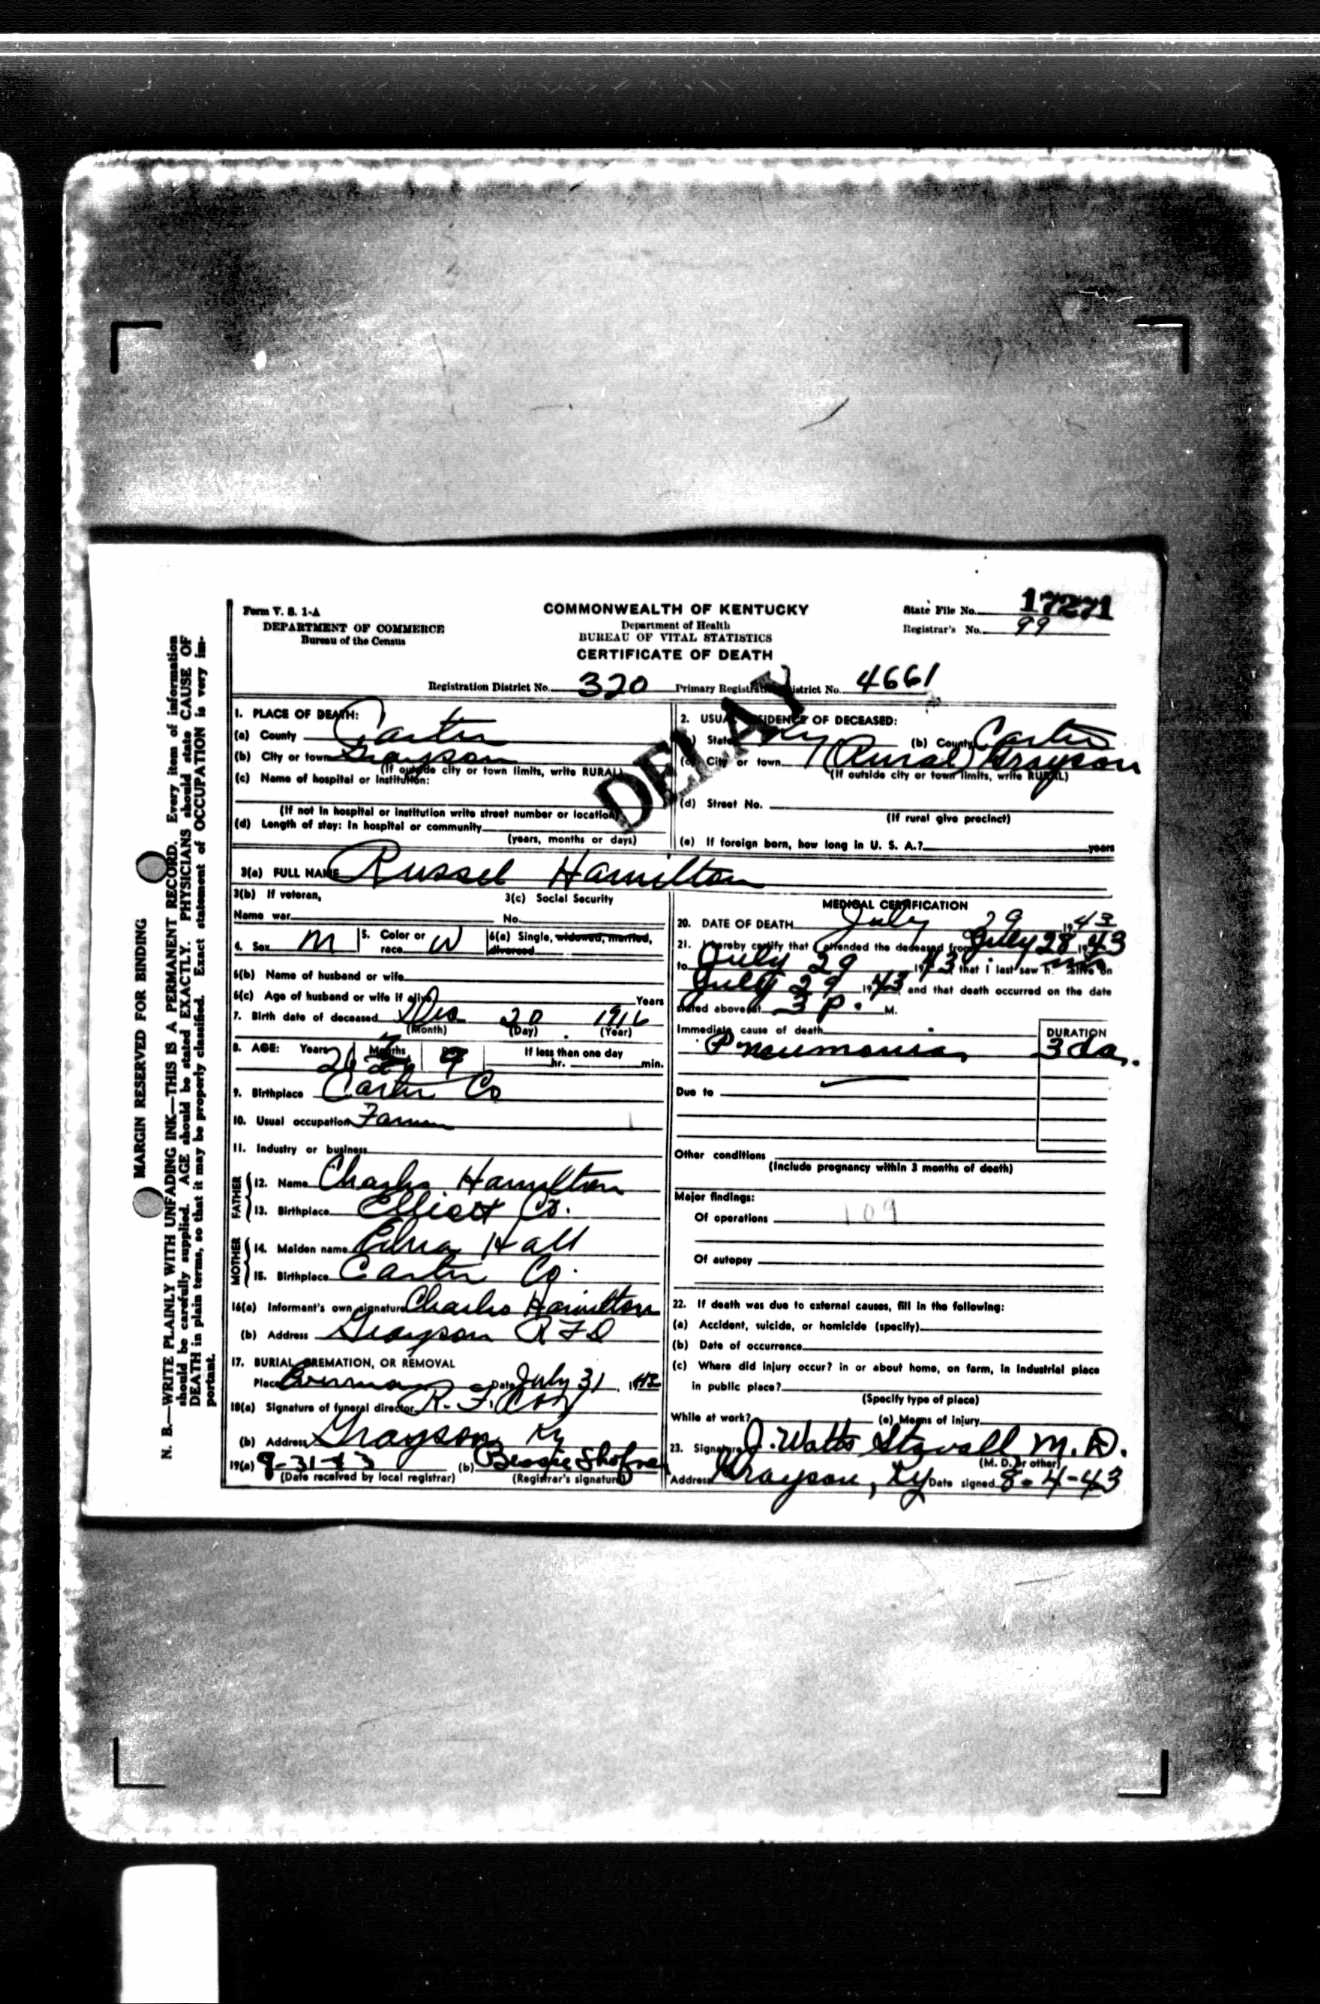 Form V. S. 1-A
DEPARTMENT OF COMMERCE
Bureau of the Census
COMMONWEALTH OF KENTUCKY
Department of Health
BUREAU OF VITAL STATISTICS
CERTIFICATE OF DEATH
State File No. 17271
Registrar's No. 99
Registration District No. 320 Primary Registration District No. 4661
DELAY
MARGIN RESERVED FOR BINDING
N. B.—WRITE PLAINLY WITH UNFADING INK—THIS IS A PERMANENT RECORD. Every item of information
should be carefully supplied. AGE should be stated EXACTLY. PHYSICIANS should state CAUSE OF
DEATH in plain terms, so that it may be properly classified. Exact statement of OCCUPATION is very im-
portant.
1. PLACE OF DEATH:
(a) County Carter
(b) City or town Grayson
(If outside city or town limits, write RURAL)
(c) Name of hospital or institution:
(If not in hospital or institution write street number or location)
(d) Length of stay: In hospital or community
(years, months or days)
2. USUAL RESIDENCE OF DECEASED:
(a) State Ky (b) County Carter
(c) City or town (Rural) Grayson
(If outside city or town limits, write RURAL)
(d) Street No.
(If rural give precinct)
(e) If foreign born, how long in U. S. A.? years
3(a) FULL NAME Russel Hamilton
3(b) If veteran,
Name war
3(c) Social Security
No.
4. Sex M 5. Color or race W 6(a) Single, widowed, married, divorced
6(b) Name of husband or wife
6(c) Age of husband or wife if alive Years
7. Birth date of deceased Dec 20 1916
(Month) (Day) (Year)
8. AGE: Years 26 Months 7 Days 9 If less than one day
hr. min.
9. Birthplace Carter Co
10. Usual occupation Farmer
11. Industry or business
FATHER
12. Name Charles Hamilton
13. Birthplace Elliott Co.
MOTHER
14. Maiden name Edna Hall
15. Birthplace Carter Co.
16(a) Informant's own signature Charles Hamilton
(b) Address Grayson RFD
17. BURIAL, CREMATION, OR REMOVAL
Place Date July 31, 1943
18(a) Signature of funeral director R. F.
(b) Address Grayson Ky
19(a) (b) Bessie
(Date received by local registrar) (Registrar's signature)
MEDICAL CERTIFICATION
20. DATE OF DEATH July 29 1943
21. I hereby certify that I attended the deceased from July 28 1943
to July 29 1943 that I last saw h im alive on
July 29 1943 and that death occurred on the date
stated above at 3 P. M.
Immediate cause of death DURATION
Pneumonia 3 da.
Due to
Other conditions
(Include pregnancy within 3 months of death)
Major findings:
Of operations 109
Of autopsy
22. If death was due to external causes, fill in the following:
(a) Accident, suicide, or homicide (specify)
(b) Date of occurrence
(c) Where did injury occur? in or about home, on farm, in industrial place
in public place?
(Specify type of place)
While at work? (e) Means of injury
23. Signature J. Watts Stovall M.D.
(M. D. or other)
Address Grayson, Ky Date signed 8-4-43